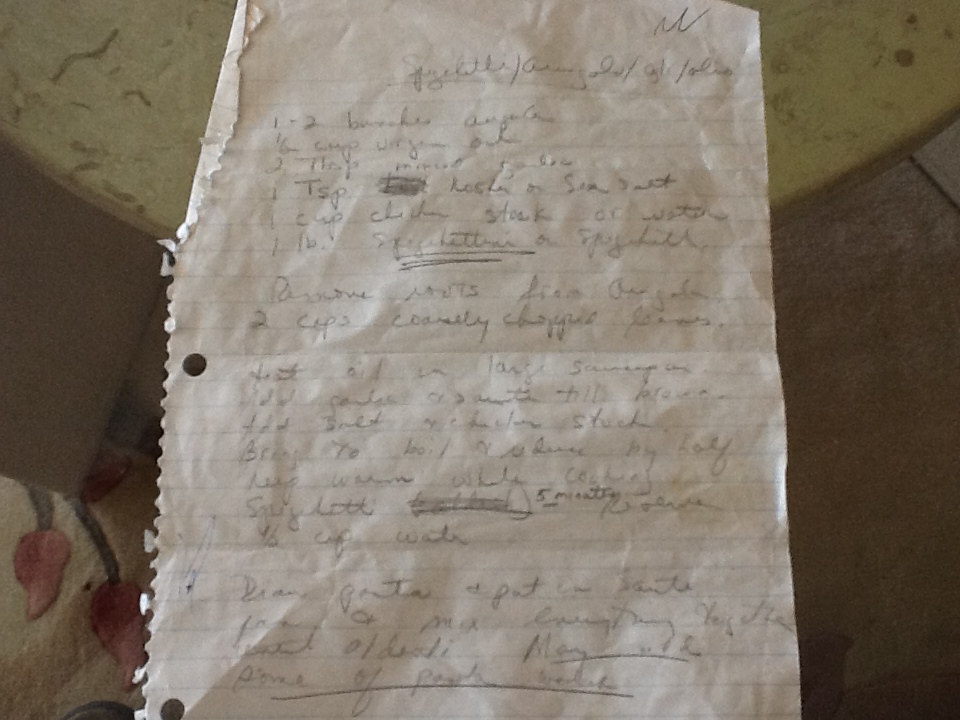 Spighetti/Arugola/
1-2 bunches arugola
cup virgin oil
2 Tbsp minced garlic
1 Tsp kosher or Sea Salt
1 cup chicken stock or water
1 lb. Spighettini or Spighetti.
Remove roots from Arugola.
2 cups coarsely chopped leaves.
Heat oil in large saucepan
Add garlic & saute till brown.
Add salt & chicken stock.
Bring to boil & reduce by half
keep warm while cooking
Spighetti 5 minutes Reserve
1/2 cup water
Drain pasta & put in saute
pan & mix everything together
until al denti May add
some of pasta water